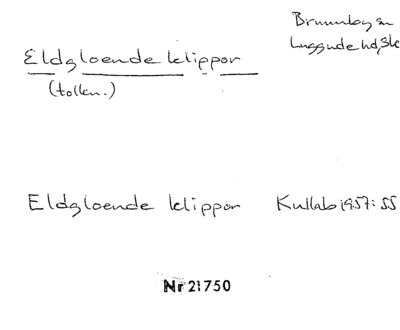 Brunnby sn
Luggude hd, Sk
Eldgloende klippor
(tolkn.)
Eldgloende klippor Kullab 1957:55
Nr 21750